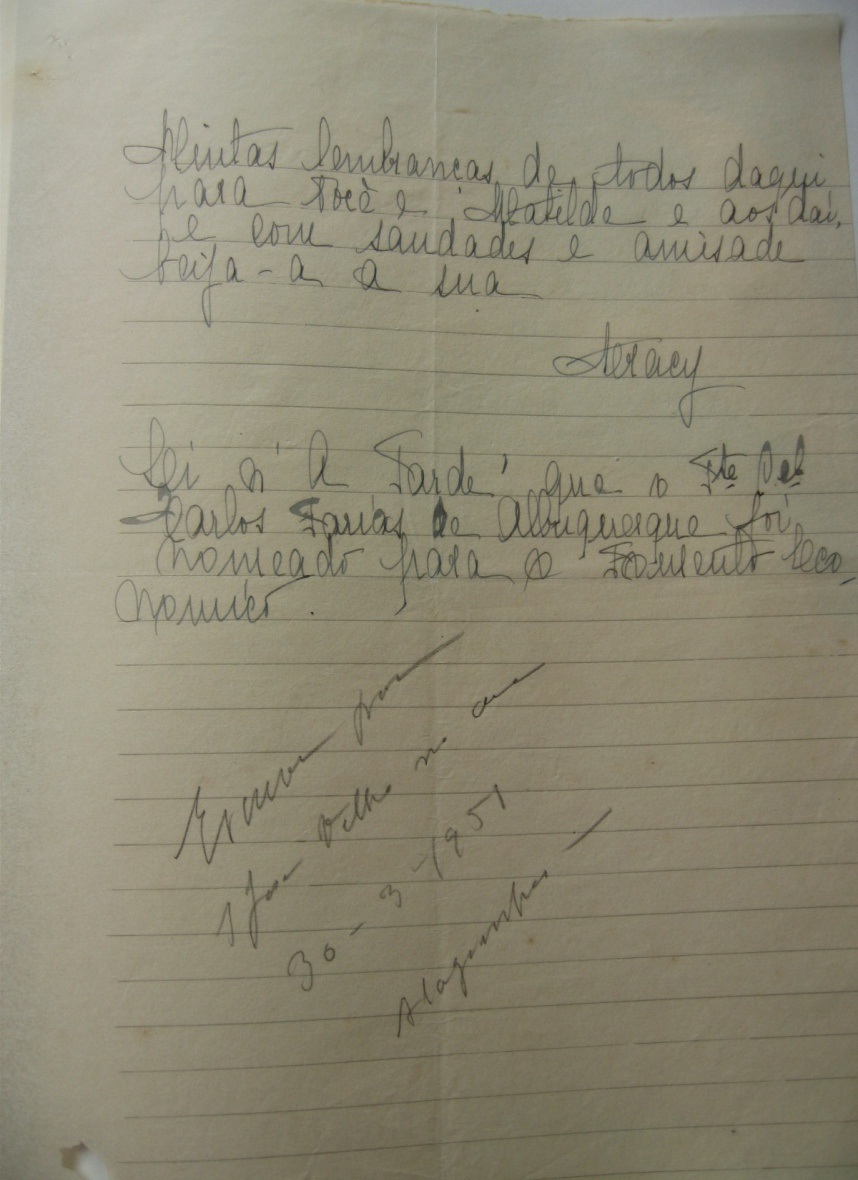 Muitas lembranças de todos daqui
para você e Matilde e aos daí,
e com saudades e amisade
beija-a a sua
Aracy
Li n' A Tarde' que o Te Cel
Carlos Farias de Albuquerque foi
nomeado para o Fomento Eco_
nomico.
Escrevi para
S José Velho no
30-3-1951
Alagoinhas